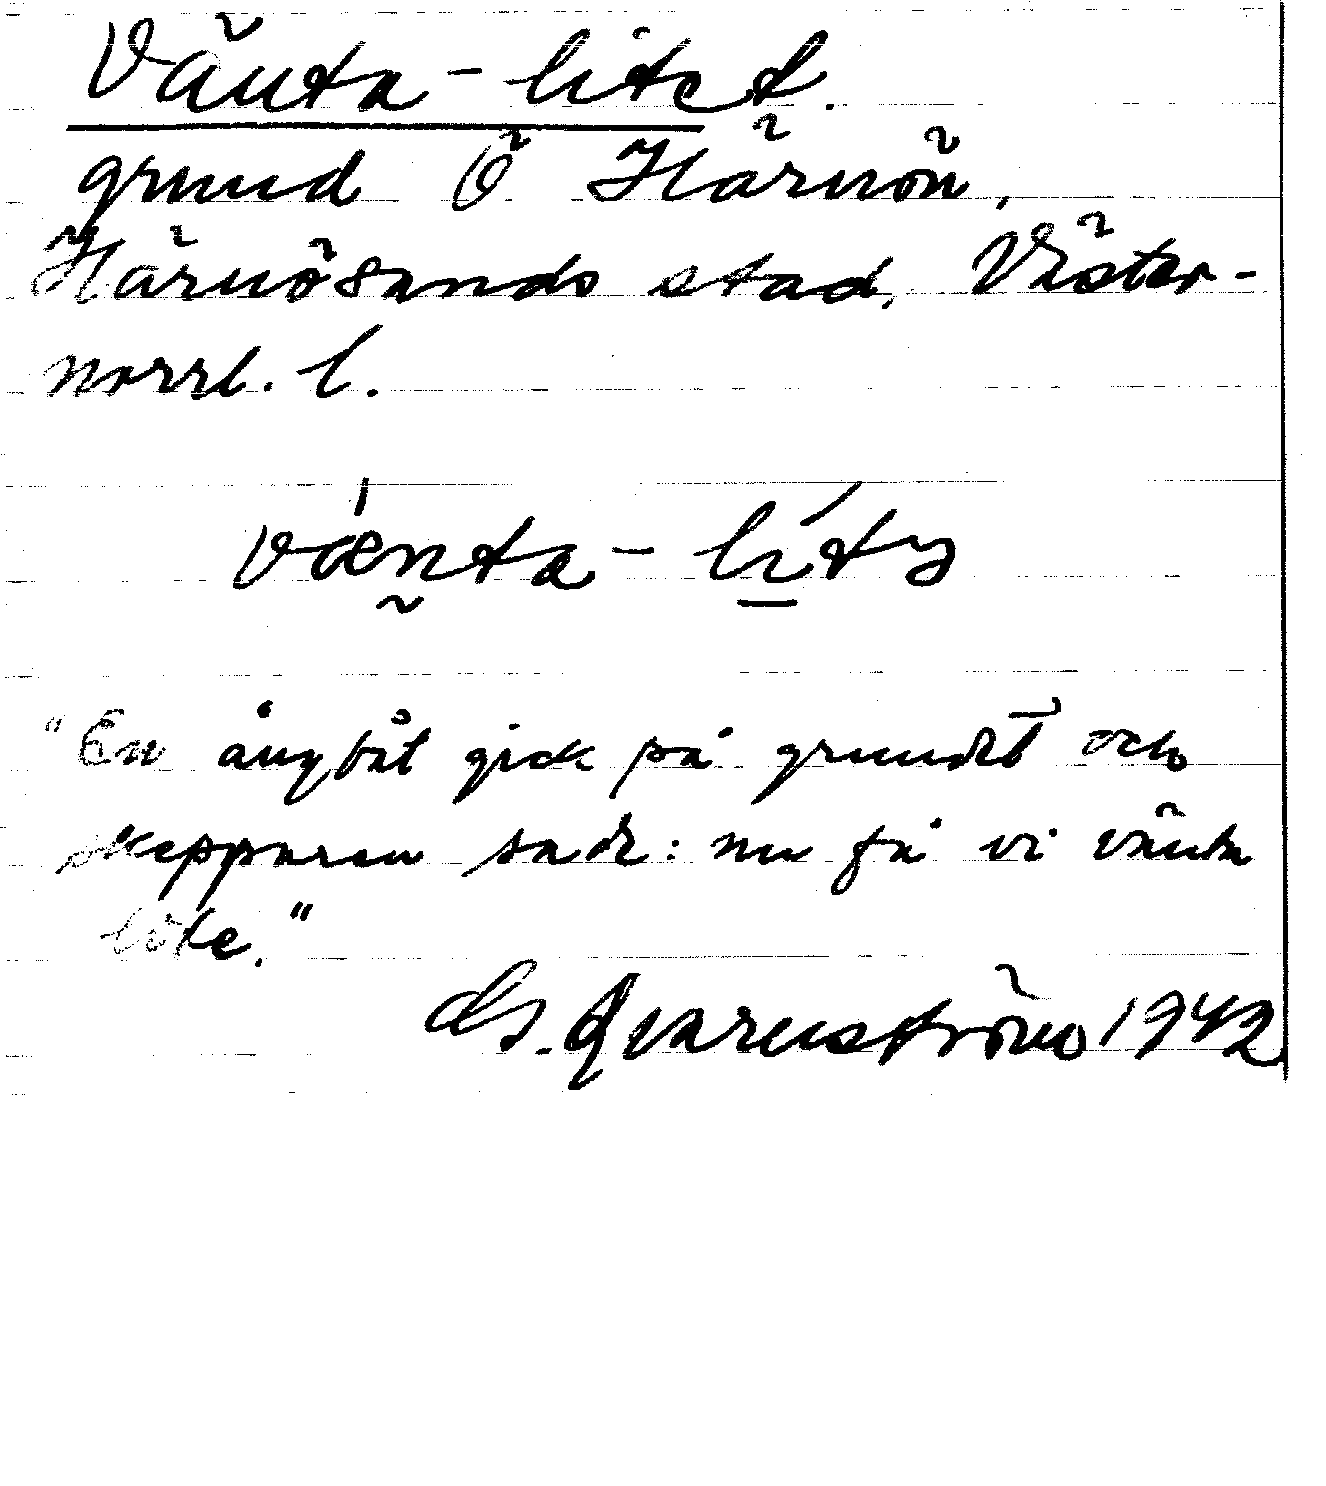 Vänta-litet.
grund Ö Härnön,
Härnösands stad, Väster-
norrl. l.
vænta-líty
"En ångbåt gick på grundet och
skepparen sade: nu få vi vänta
lite."
Ds. Qvarnström 1942